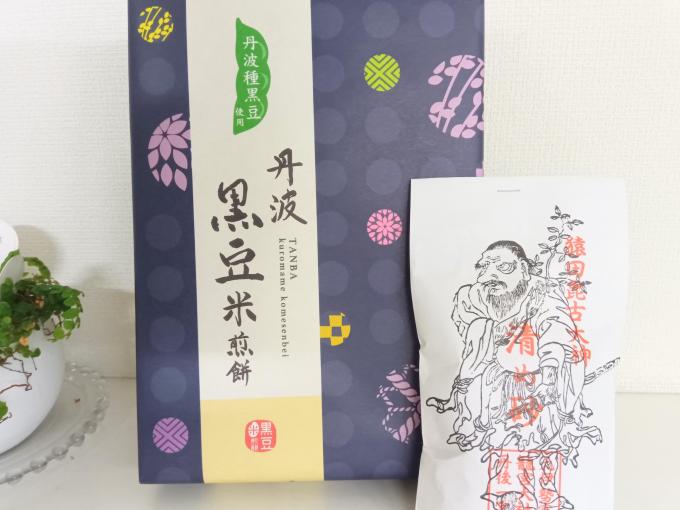 丹波種黒豆
使用
丹波
黒豆米煎餅
TANBA
kuromame komesenbei
黒豆
猿田毘古大神
清めの砂